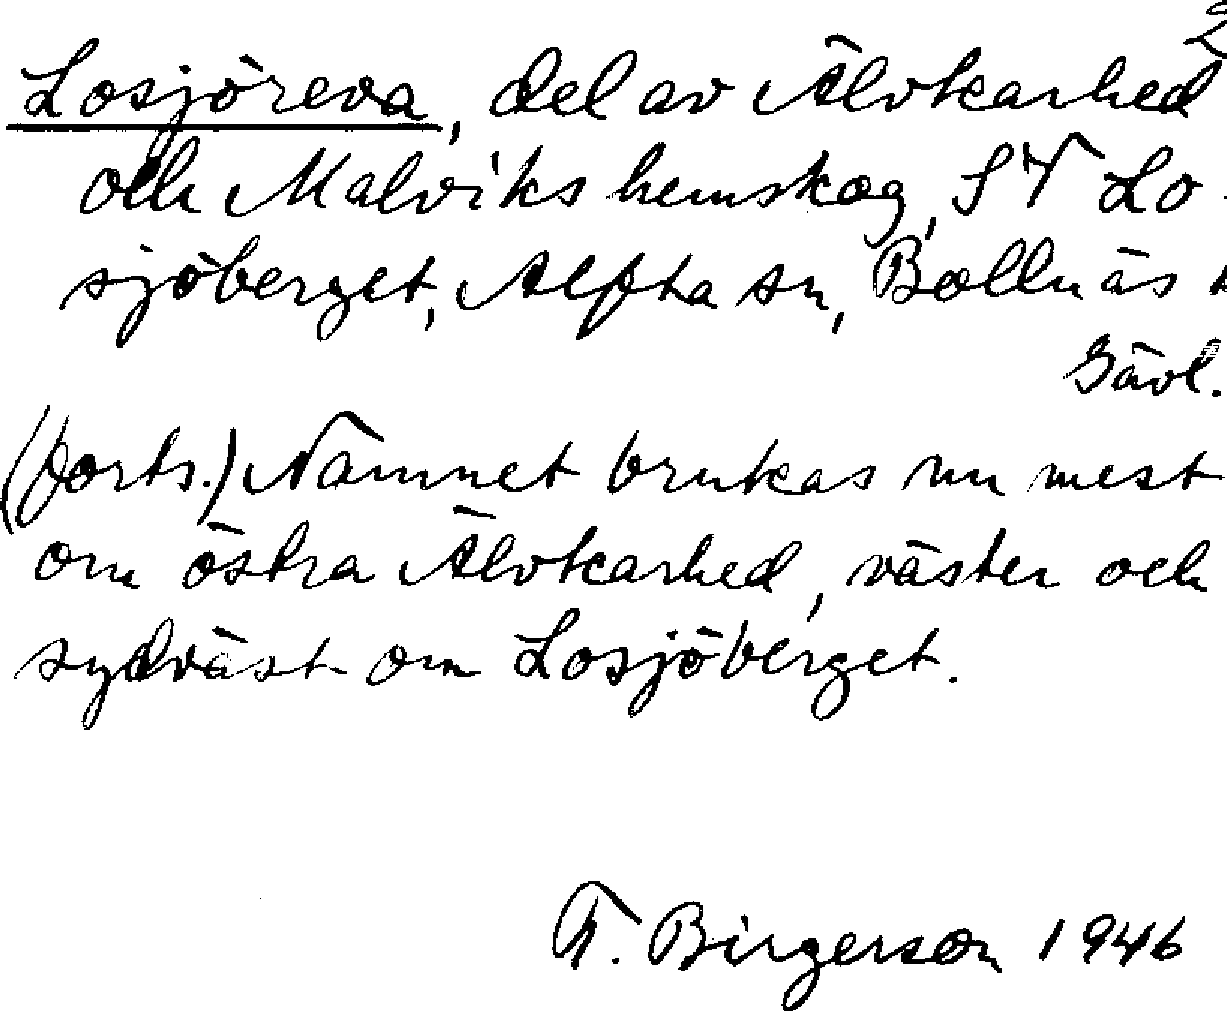 2
Losjöreva, del av Älvkarhed
och Malviks hemskog, SV Lo-
sjöberget, Alfta sn, Bollnäs
Gävl.
(forts.) Namnet brukas nu mest
om östra Älvkarhed, väster och
sydväst om Losjöberget.
Birgerson 1946